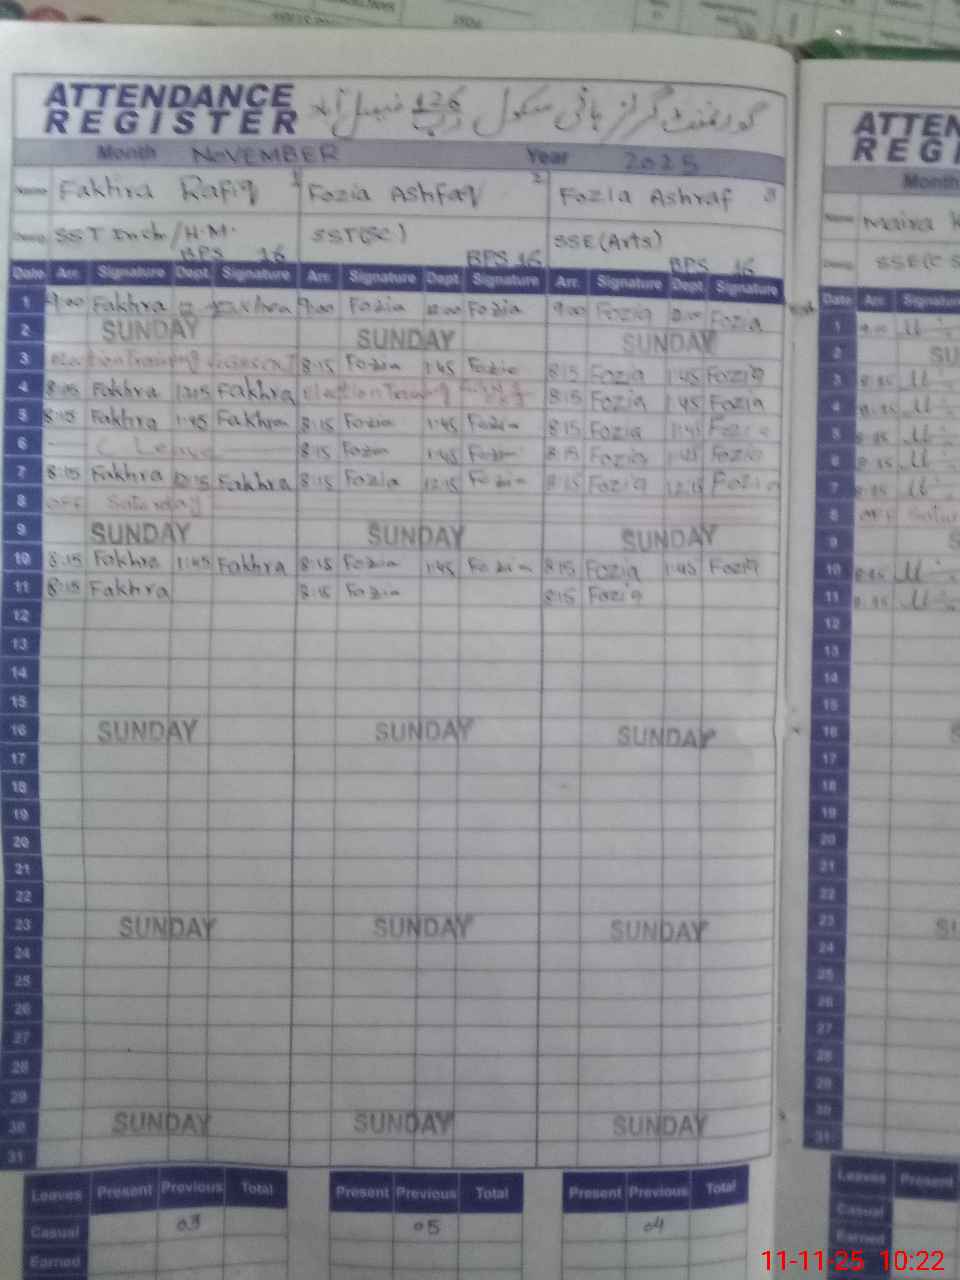 ATTENDANCE REGISTER گورنمنٹ گرلز ہائی سکول 126 ر ب فیصل آباد
Month NOVEMBER Year 2025
Name Fakhra Rafiq 1 Fozia Ashfaq 2 Fozia Ashraf 3
Desig SST Inch/H.M. BPS 16 SST(SC) BPS 16 SSE(Arts) BPS 16
Date Arr. Signature Dept. Signature Arr. Signature Dept Signature Arr. Signature Dept. Signature
1 9:00 Fakhra Fakhra 9:00 Fozia 12:00 Fozia 9:00 Fozia Fozia
2 SUNDAY SUNDAY SUNDAY
3 Election Training 8:15 Fozia 1:45 Fozia 8:15 Fozia 1:45 Fozia
4 8:15 Fakhra Fakhra Election Training 8:15 Fozia 1:45 Fozia
5 8:15 Fakhra 1:45 Fakhra 8:15 Fozia 1:45 Fozia 8:15 Fozia 1:45 Fozia
6 C Leave 8:15 Fozia 1:45 Fozia 8:15 Fozia 1:45 Fozia
7 8:15 Fakhra 12:15 Fakhra 8:15 Fozia 12:15 Fozia 8:15 Fozia 12:15 Fozia
8 OFF Saturday
9 SUNDAY SUNDAY SUNDAY
10 8:15 Fakhra 1:45 Fakhra 8:15 Fozia 1:45 Fozia 8:15 Fozia 1:45 Fozia
11 8:15 Fakhra 8:15 Fozia 8:15 Fozia
12
13
14
15
16 SUNDAY SUNDAY SUNDAY
17
18
19
20
21
22
23 SUNDAY SUNDAY SUNDAY
24
25
26
27
28
29
30 SUNDAY SUNDAY SUNDAY
31
Leaves Present Previous Total Present Previous Total Present Previous Total
Casual 03 05 04
Earned
ATTEN
REGI
Month
Name Maira
Desig SSE(C S
Date Arr. Signatu
1 9:00
2 SU
3 8:15
4 8:15
5 8:15
6 8:15
7 8:15
8 OFF Satur
9 S
10 8:15
11 8:15
12
13
14
15
16 S
17
18
19
20
21
22
23 SU
24
25
26
27
28
29
30
31
Leaves Present
Casual
Earned
11-11-25 10:22